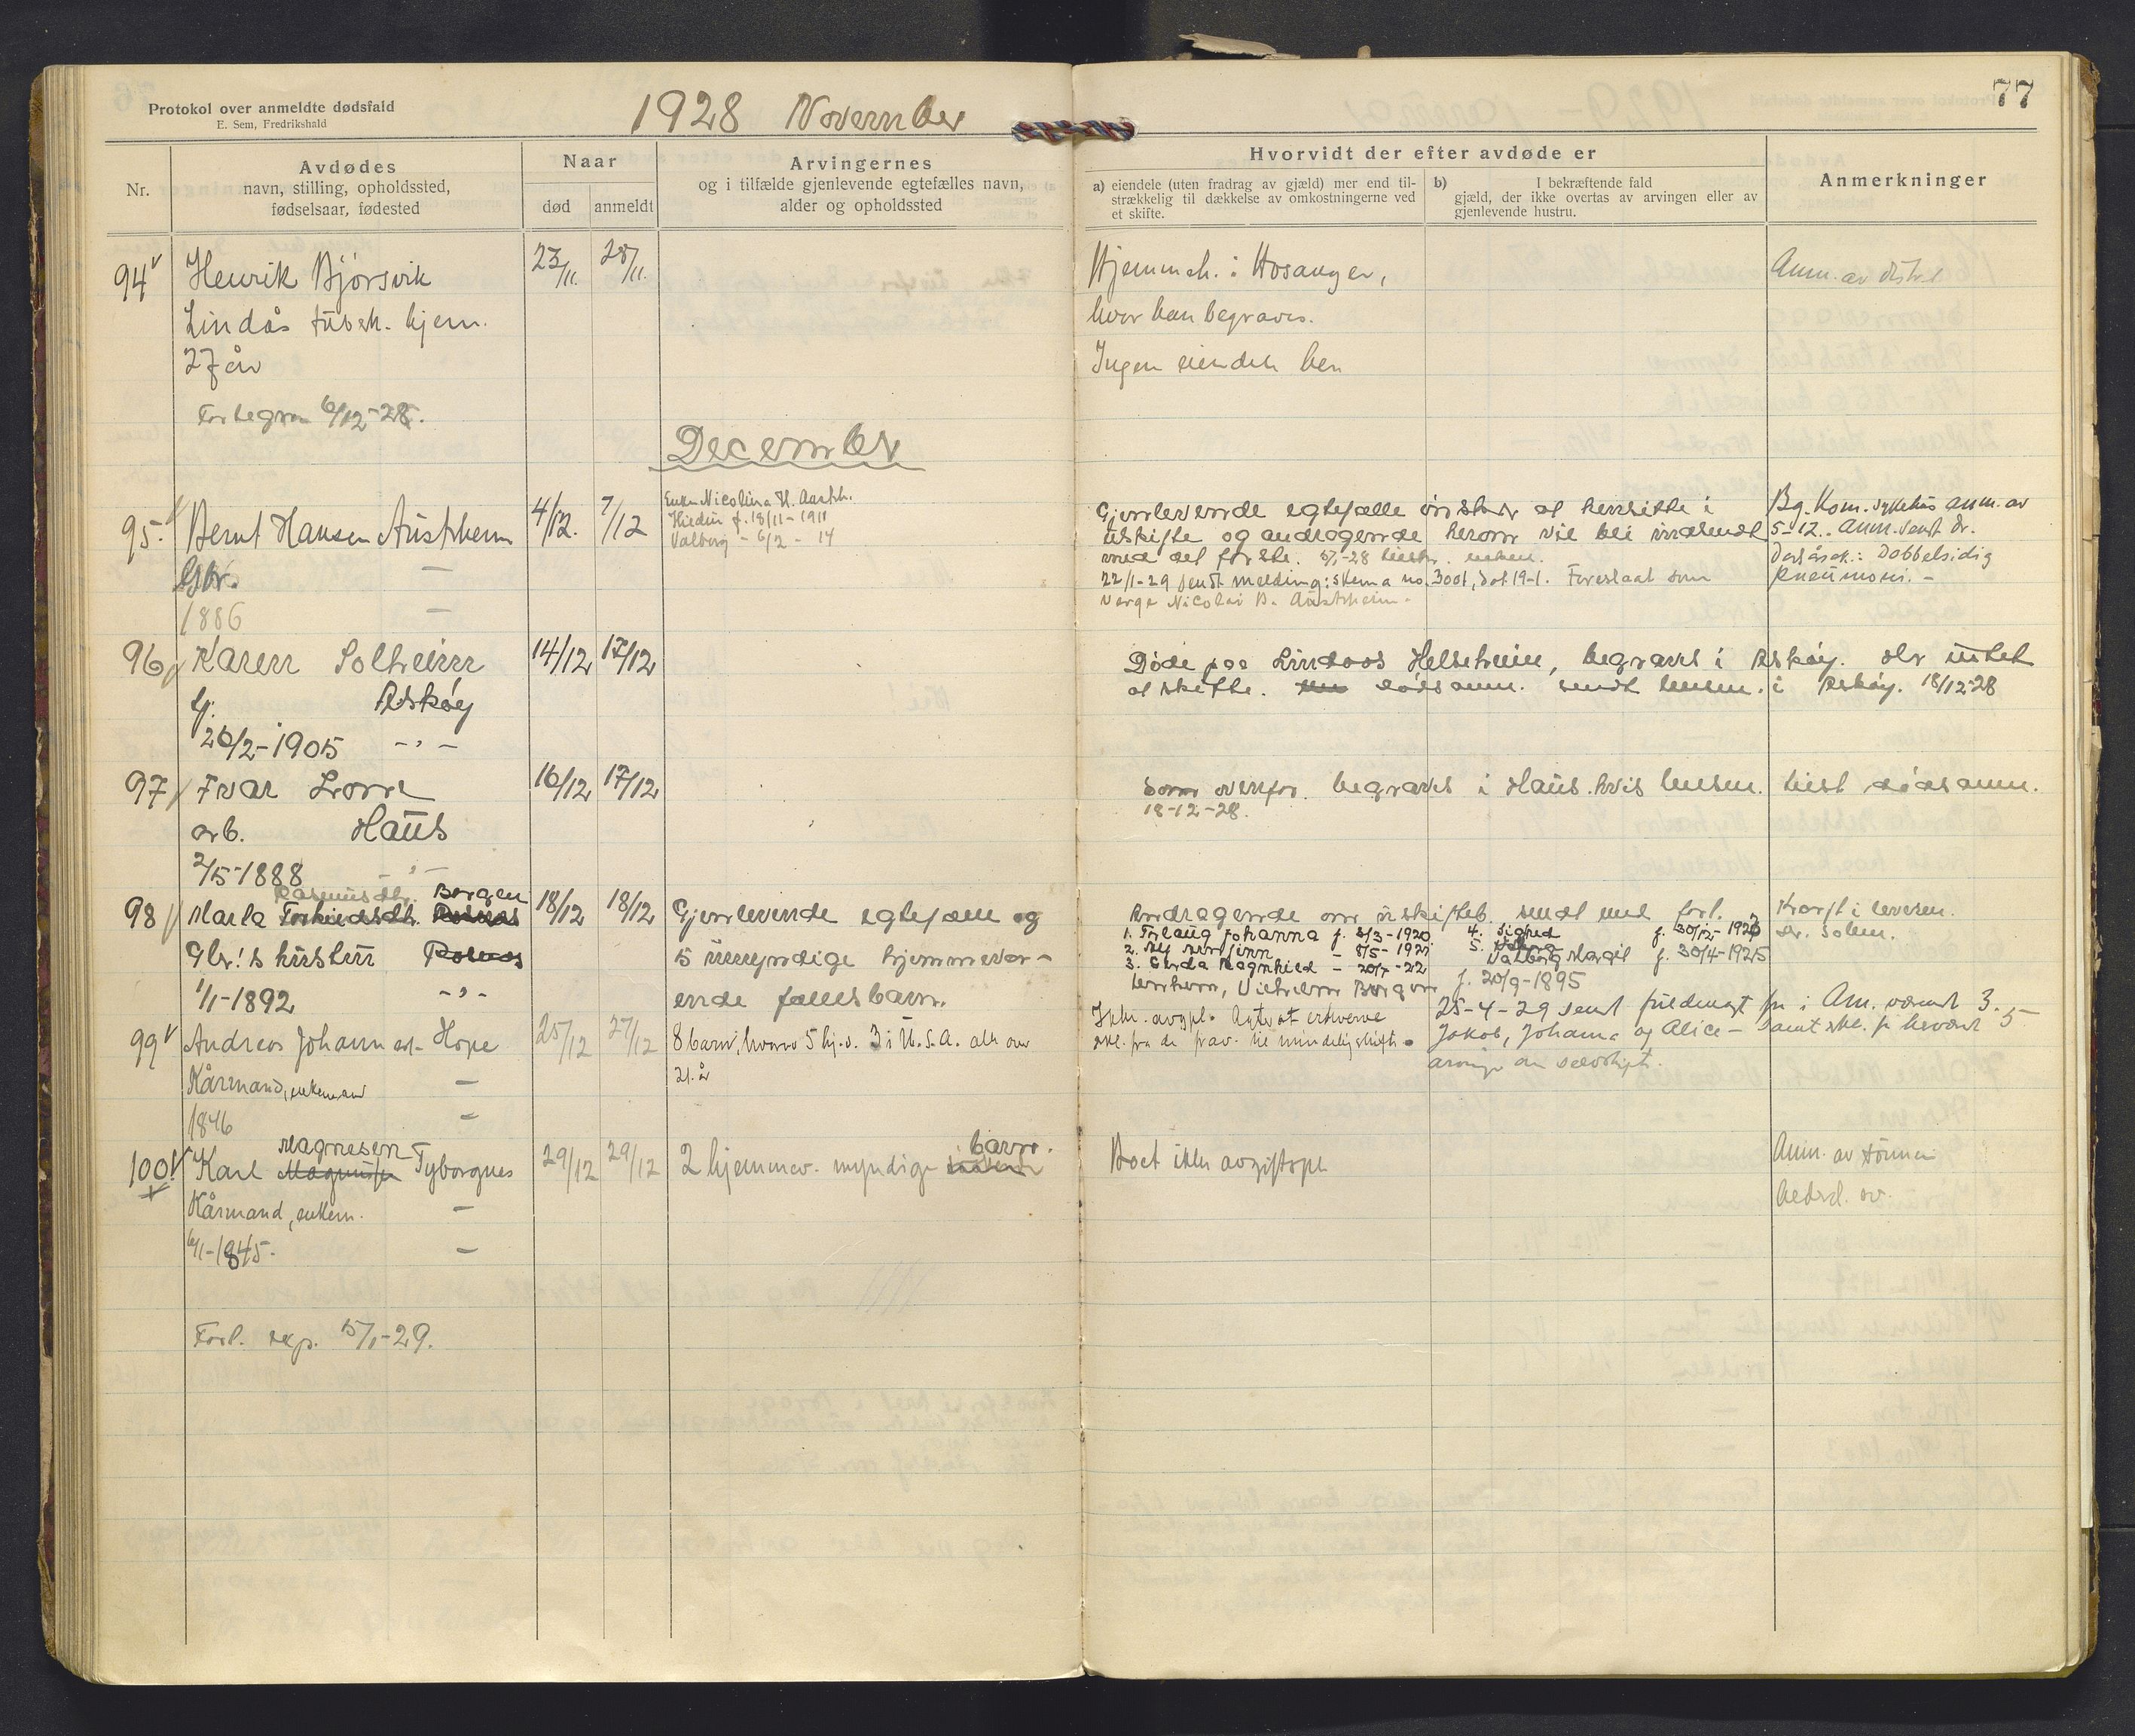 Protokol over anmeldte dødsfald
E. Sem, Fredrikshald
1928 November
77
Nr.
Avdødes
navn, stilling, opholdssted,
fødselsaar, fødested
Naar
død
anmeldt
Arvingernes
og i tilfælde gjenlevende egtefælles navn,
alder og opholdssted
Hvorvidt der efter avdøde er
a) eiendele (uten fradrag av gjæld) mer end til-
strækkelig til dækkelse av omkostningerne ved
et skifte.
b) I bekræftende fald
gjæld, der ikke overtas av arvingen eller av
gjenlevende hustru.
Anmerkninger
94
Henrik Bjørsvik
23/11.
28/11.
Hjemmeh. i Hosanger,
Anm. av
Lindås tuberk. hjem.
hvor han begraves.
27 år
Ingen eiendele her
6/12-28.
December
95.
Bernt Hansen Austrheim
4/12.
7/12
Enke Nicolina H. Austrh.
f. 18/11-1911
Valborg - 6/2 - 14
Gjenlevende egtefælle ønsker at hensitte i
uskifte og andragende herom vil bli indsendt
med det første.
22/1-29 sendt melding: skema no. 3001, dat. 19-1. Foreslaat som
verge Nicolai B. Austrheim.
Bg. Kom. sykehus anm. av
5-12. anm. sendt dr.
Dødsårsak: Dobbelsidig
pneumoni. -
Gbr. -
1886 -
96
Karen Solheim
14/12
17/12
Døde paa Lindaas Helseheim, begraves i Askøy. Her intet
at skifte. dødsanm. sendt lensm. i Askøy. 18/12-28
Askøy
26/2-1905 - " -
97
Ivar
16/12
17/12
Som ovenfor. begraves i Haus. hvis lensm. tilst. dødsanm.
18-12-28.
arb. Haus
2/5-1888 - " -
98
Rasmusdtr. Bergen
Marta
18/12
18/12
Gjenlevende egtefælle og
Andragende om uskifteb. sendt med forl.
Kræft i leveren.
Dr. Solem.
Gbr.s hustru
5 umyndige hjemmevær-
1/1-1892 - " -
ende fællesbarn.
1. Johanna f. 8/3-1920
2. - 8/5-1921
3. Gerda Ragnhild - 20/7-22
4. Signed f. 30/12-1923
5. Valborg Margit f. 30/4-1925
Vilhelm Bergen f. 20/9-1895
99
Andreas Johannesl. Hope
25/12
27/12
8 barn, hvorav 5 hj.v. 3 i U.S.A. alle over
21. år
Ikke avgpl.
25-4-29 sendt fuldmagt fra i Am. værende 3.
Jakob, Johanna og Alice - samt
Kårmand, enkemand -
1846 -
100
Magnesen
Karl Tyborgnes
29/12
29/12
2 hjemmev. myndige barn.
Boet ikke avgiftspl.
Anm. av sønnen
Kårmand, enkem. -
6/1-1845. -
Forl. exp. 15/1-29.